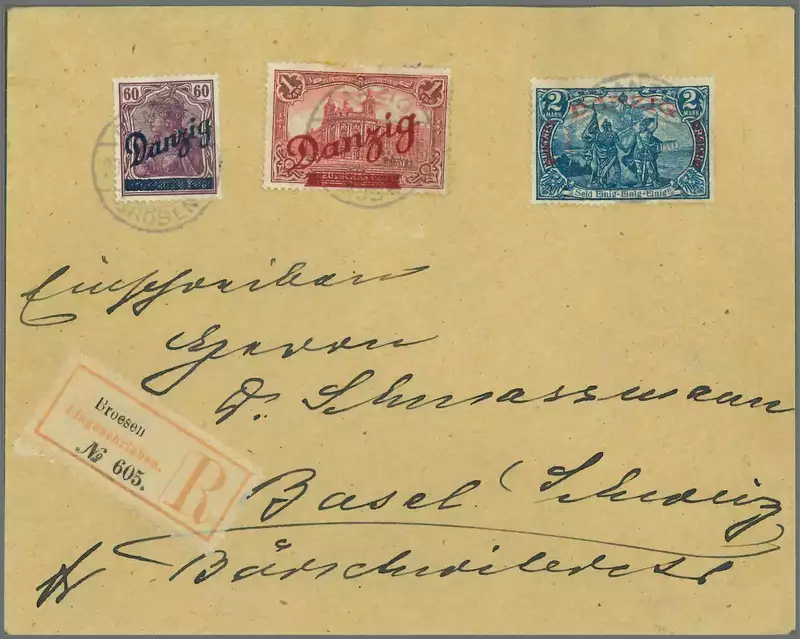 60 60
Danzig
1 1
Danzig
2 MARK 2 MARK
DANZIG
Seid Einig-Einig-Einig!
BRÖSEN
Einschreiben
Herrn
Dr. Schmassmann
Basel (Schweiz
Broesen
Eingeschrieben.
№ 605.
R